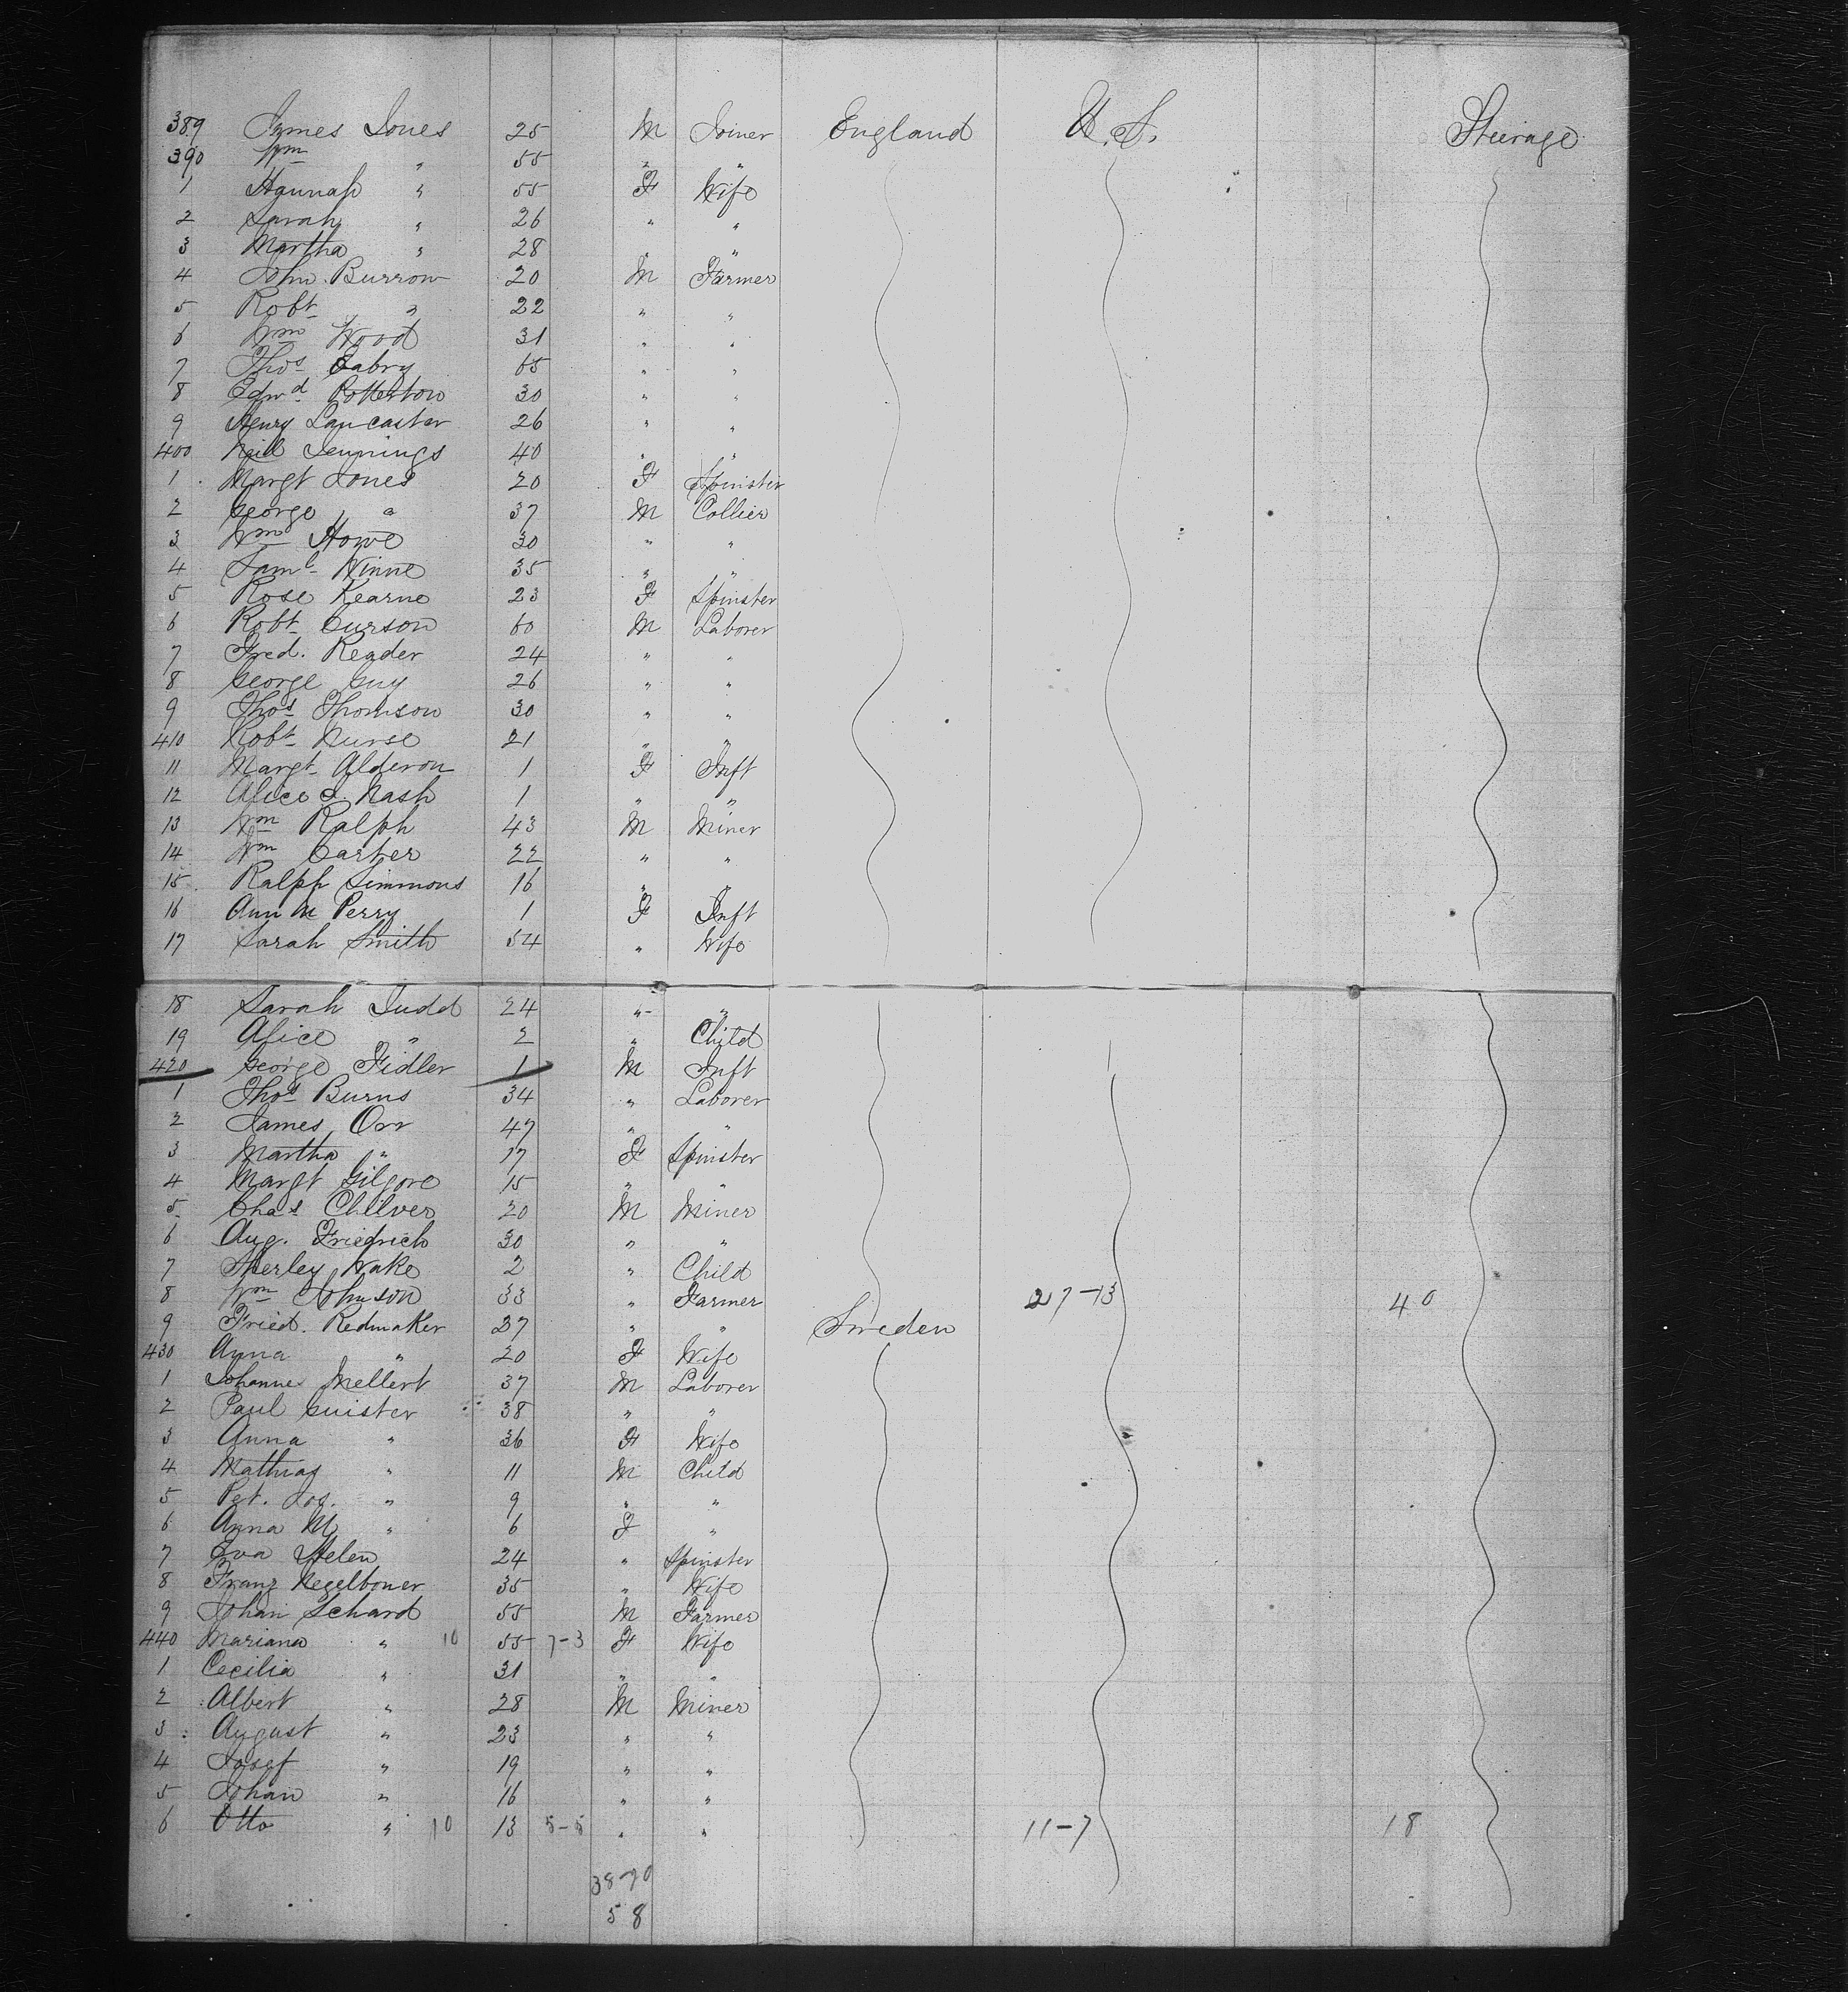 389 James Jones 25 M Joiner England U.S. Steerage
390 Wm " 55 " "
1 Hannah " 55 F Wife
2 Sarah " 26 " "
3 Martha " 28 " "
4 John Burrow 20 M Farmer
5 Robt " 22 " "
6 Wm Wood 31 " "
7 Thos Eabry 65 " "
8 Edwd 30 " "
9 Henry Lancaster 26 " "
400 Neil Jennings 40 " "
1 Margt Jones 20 F Spinster
2 George " 37 M Collier
3 Wm Howe 30 " "
4 Saml Winne 35 " "
5 Rose Kearne 23 F Spinster
6 Robt Curson 60 M Laborer
7 Fred. Reader 24 " "
8 George Guy 26 " "
9 Thos Thomson 30 " "
410 Robt Nurse 21 " "
11 Margt Alderon 1 F Inft
12 Alice J. Nash 1 " "
13 Wm Ralph 43 M Miner
14 Wm Carter 22 " "
15 Ralph Simmons 16 " "
16 Ann M Perry 1 F Inft
17 Sarah Smith 54 " Wife
18 Sarah Judd 24 " "
19 Alice " 2 " Child
420 George Fidler 1 M Inft
1 Thos Burns 34 " Laborer
2 James Orr 47 " "
3 Martha " 17 F Spinster
4 Margt Gilgore 15 " "
5 Chas Chilver 20 M Miner
6 Aug. Friedrich 30 " "
7 Sherley Wake 2 " Child
8 Wm Johnson 33 " Farmer 27-13 40
9 Fried. Redmaker 27 " " Sweden
430 Anna " 20 F Wife
1 Johannes Mellert 37 M Laborer
2 Paul Guister 38 " "
3 Anna " 36 F Wife
4 Mathias " 11 M Child
5 Pet. Jos. " 9 " "
6 Anna M " 6 F "
7 Eva Helen 24 " Spinster
8 Franz Negelboner 35 " Wife
9 Johan Schard 55 M Farmer
440 Mariana " 10 55 7-3 F Wife
1 Cecilia " 31 " "
2 Albert " 28 M Miner
3 August " 23 " "
4 Josef " 19 " "
5 Johan " 16 " "
6 Otto " 10 13 5-5 " " 11-7 18
38-20
58